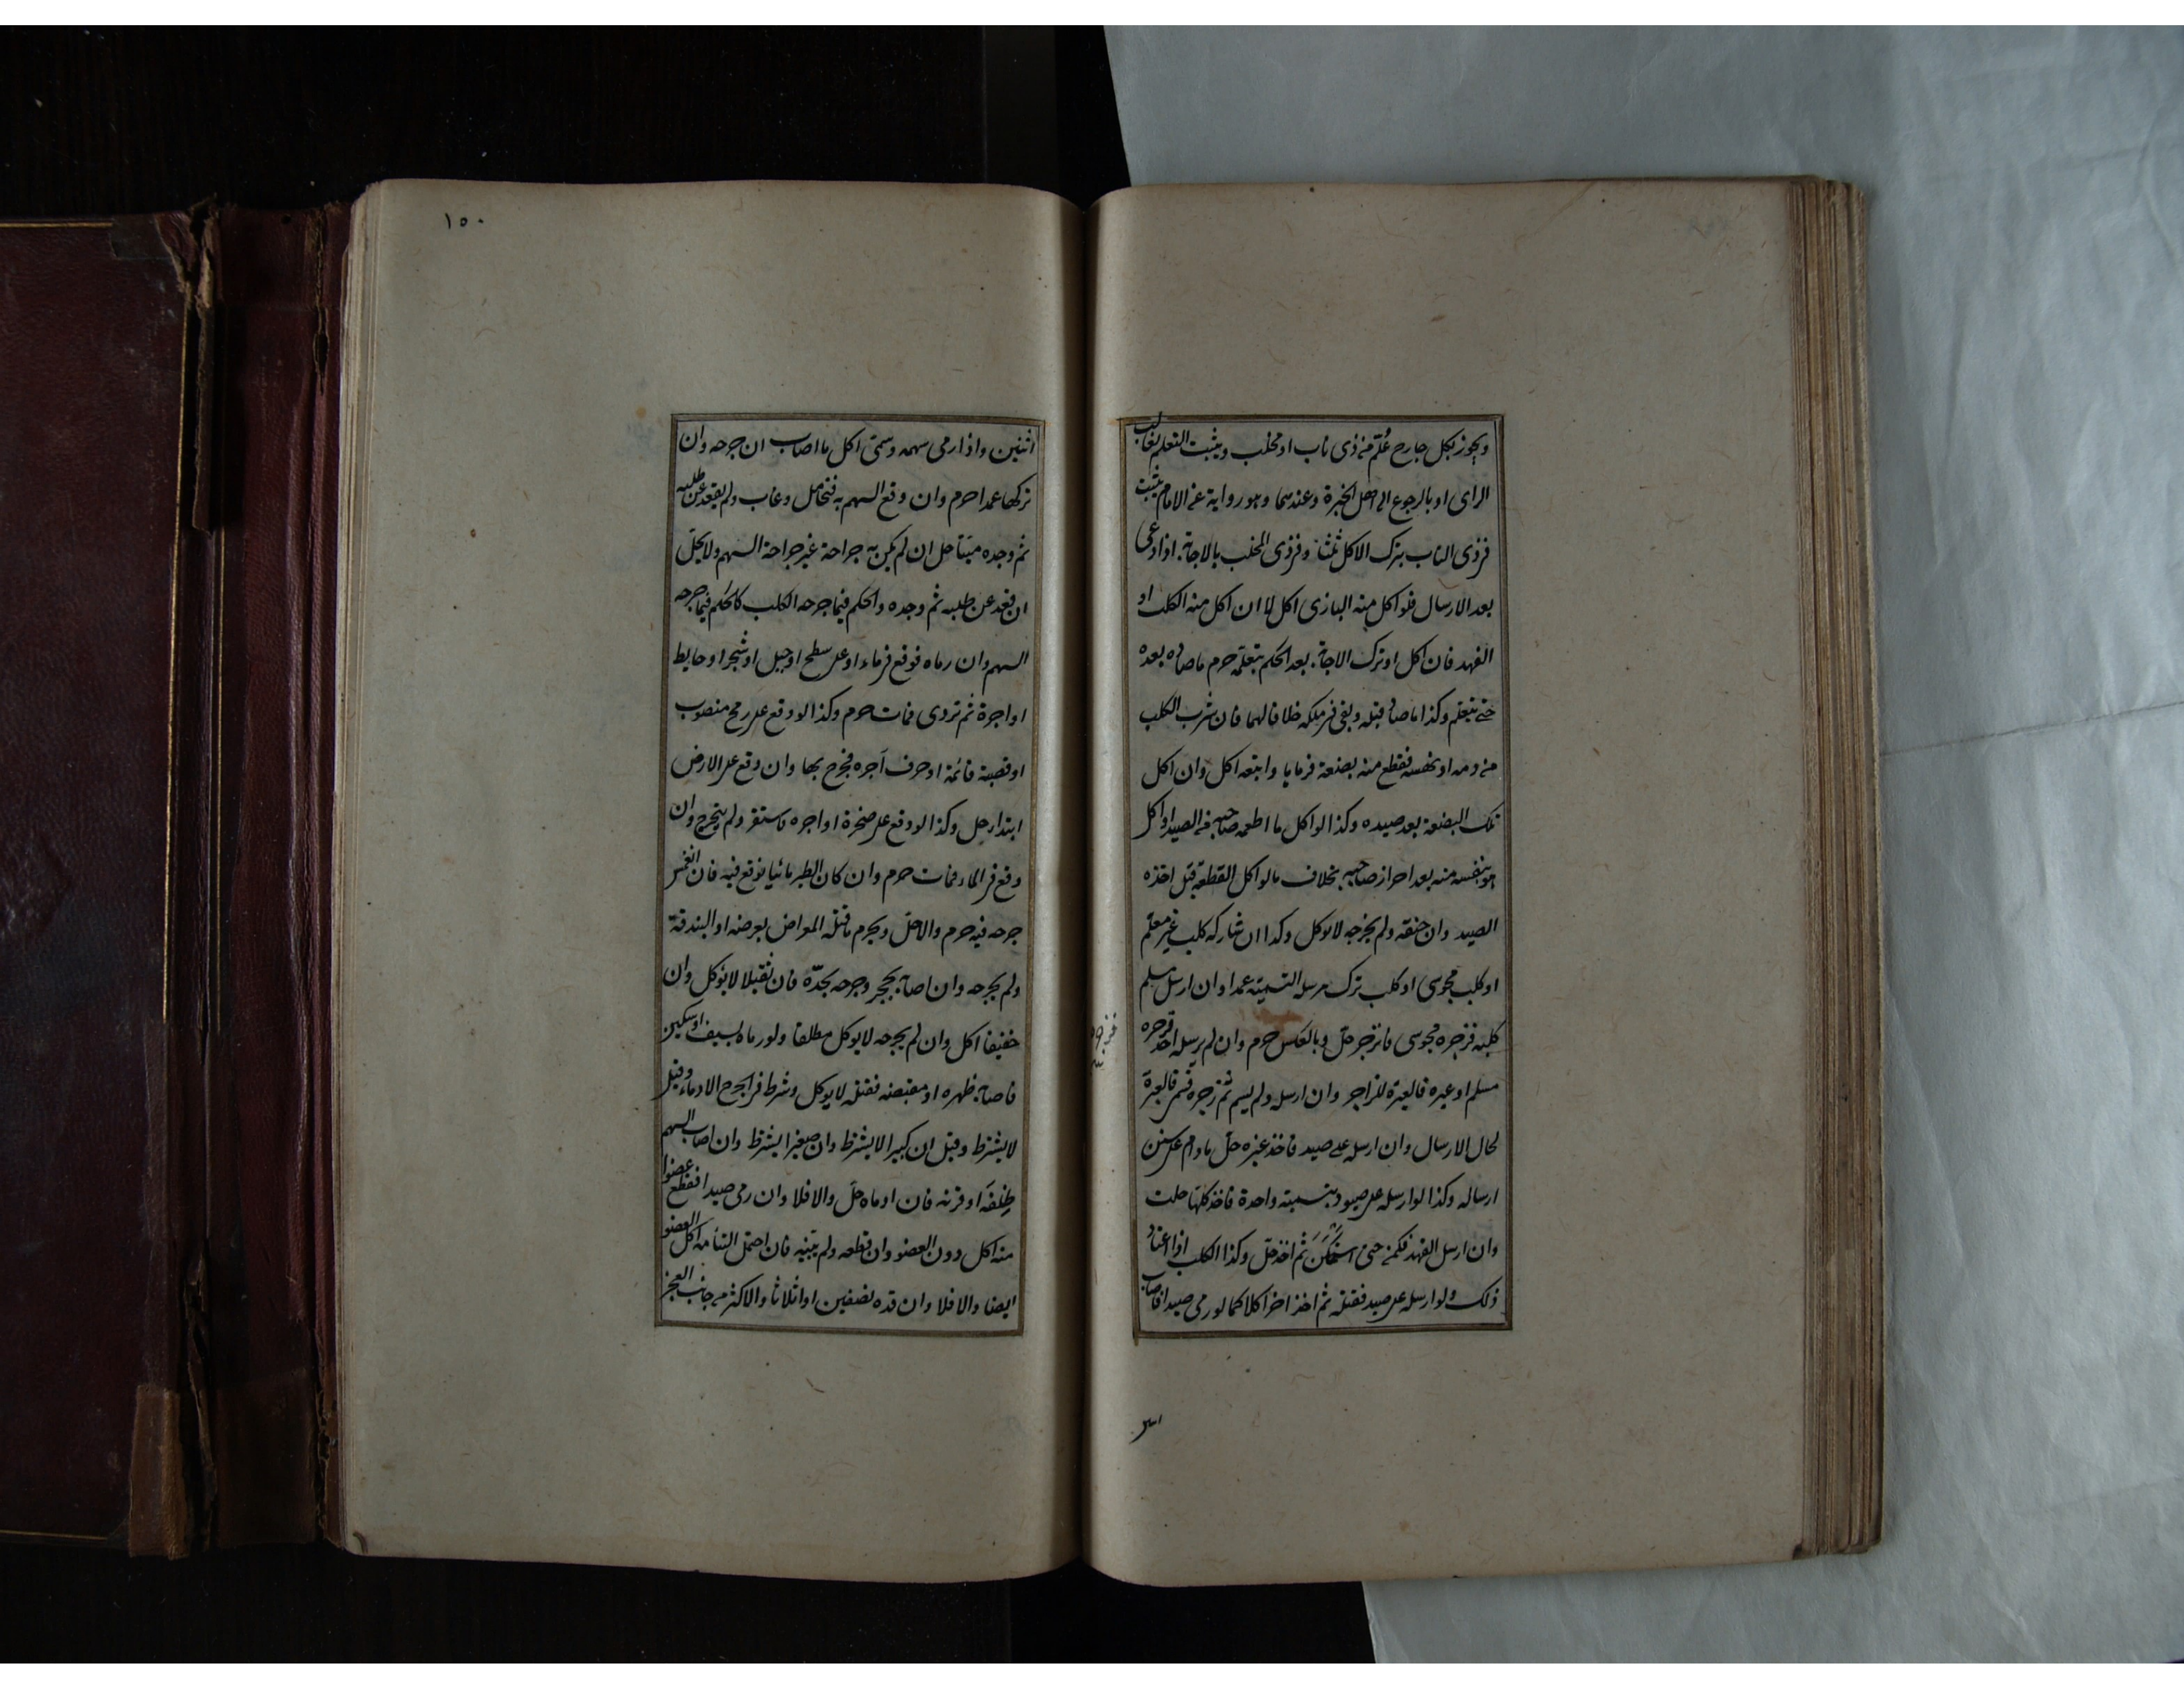 ويجوز بكل جارح عُلّم من ذى ناب او مخلب ويثبت التعلم بغالب
الراى او بالرجوع الى اهل الخبرة وعندهما وهو رواية عن الامام يثبت
فى ذى الناب بترك الاكل ثلثا وفى ذى المخلب بالاجابة اذا دعى
بعد الارسال فلو اكل منه البازى اكل لا ان اكل منه الكلب او
الفهد فان اكل او ترك الاجابة بعد الحكم بتعلمه حرم ما صاده بعده
حتى يتعلم وكذا ما صاده قبله وبقى فى ملكه خلافا لهما فان شرب الكلب
من دمه او نهسه فقطع منه بضعة فرماها واتبعه اكل وان اكل
تلك البضعة بعد صيده وكذا لو اكل ما اطعمه صاحبه من الصيد او اكل
هو بنفسه منه بعد احراز صاحبه بخلاف ما لو اكل القطعة قبل اخذه
الصيد وان خنقه ولم يجرحه لا يوكل وكذا ان شاركه كلب غير معلم
او كلب مجوسى او كلب ترك مرسله التسمية عمدا وان ارسل مسلم
كلبه فزجره مجوسى فانزجر حل وبالعكس حرم وان لم يرسله احد فزجره
مسلم او غيره فالعبرة للزاجر وان ارسله ولم يسم ثم زجره فسمى فالعبرة
لحال الارسال وان ارسله على صيد فاخذ غيره حل ما دام على سنن
ارساله وكذا لو ارسله على صيود بتسمية واحدة فاخذ كلها حلت
وان ارسل الفهد فكمن حتى استمكن ثم اخذ حل وكذا الكلب اذا اعتاد
ذلك ولو ارسله على صيد فقتله ثم اخذ اخر اكلا كما لو رمى صيدا فاصاب
١٥٠
اثنين واذا رمى سهمه وسمى اكل ما اصاب ان جرحه وان
تركها عمدا حرم وان وقع السهم به فتحامل وغاب ولم يقعد عن طلبه
ثم وجده ميتا حل ان لم يكن به جراحة غير جراحة السهم ولا يحل
ان قعد عن طلبه ثم وجده والحكم فيما جرحه الكلب كالحكم فيما جرحه
السهم وان رماه فوقع فى ماء او على سطح او جبل او شجر او حايط
او اجرة ثم تردى فمات حرم وكذا لو وقع على رمح منصوب
او قصبة قائمة او حرف آجره فجرح بها وان وقع على الارض
ابتداء حل وكذا لو وقع على صخرة او اجره فاستقر ولم ينجرح وان
وقع فى الماء فمات حرم وان كان الطير مائيا فوقع فيه فان انغمس
جرحه فيه حرم والا حل ويحرم ما قتله المعراض بعرضه او البندقة
ولم يجرحه وان اصابه بحجر وجرحه بحدّه فان ثقيلا لا يؤكل وان
خفيفا اكل وان لم يجرحه لا يوكل مطلقا ولو رماه بسيف او سكين
فاصابه ظهره او مقبضه فقتله لا يوكل وشرط فى الجرح الادماء وقيل
لا يشترط وقيل ان كبيرا لا يشترط وان صغيرا يشترط وان اصاب السهم
ظلفه او قرنه فان ادماه حل والا فلا وان رمى صيدا فقطع عضوا
منه اكل دون العضو وان قطعه ولم يبنه فان احتمل التئامه اكل العضو
ايضا والا فلا وان قده نصفين او اثلاثا والاكثر من جانب العجز